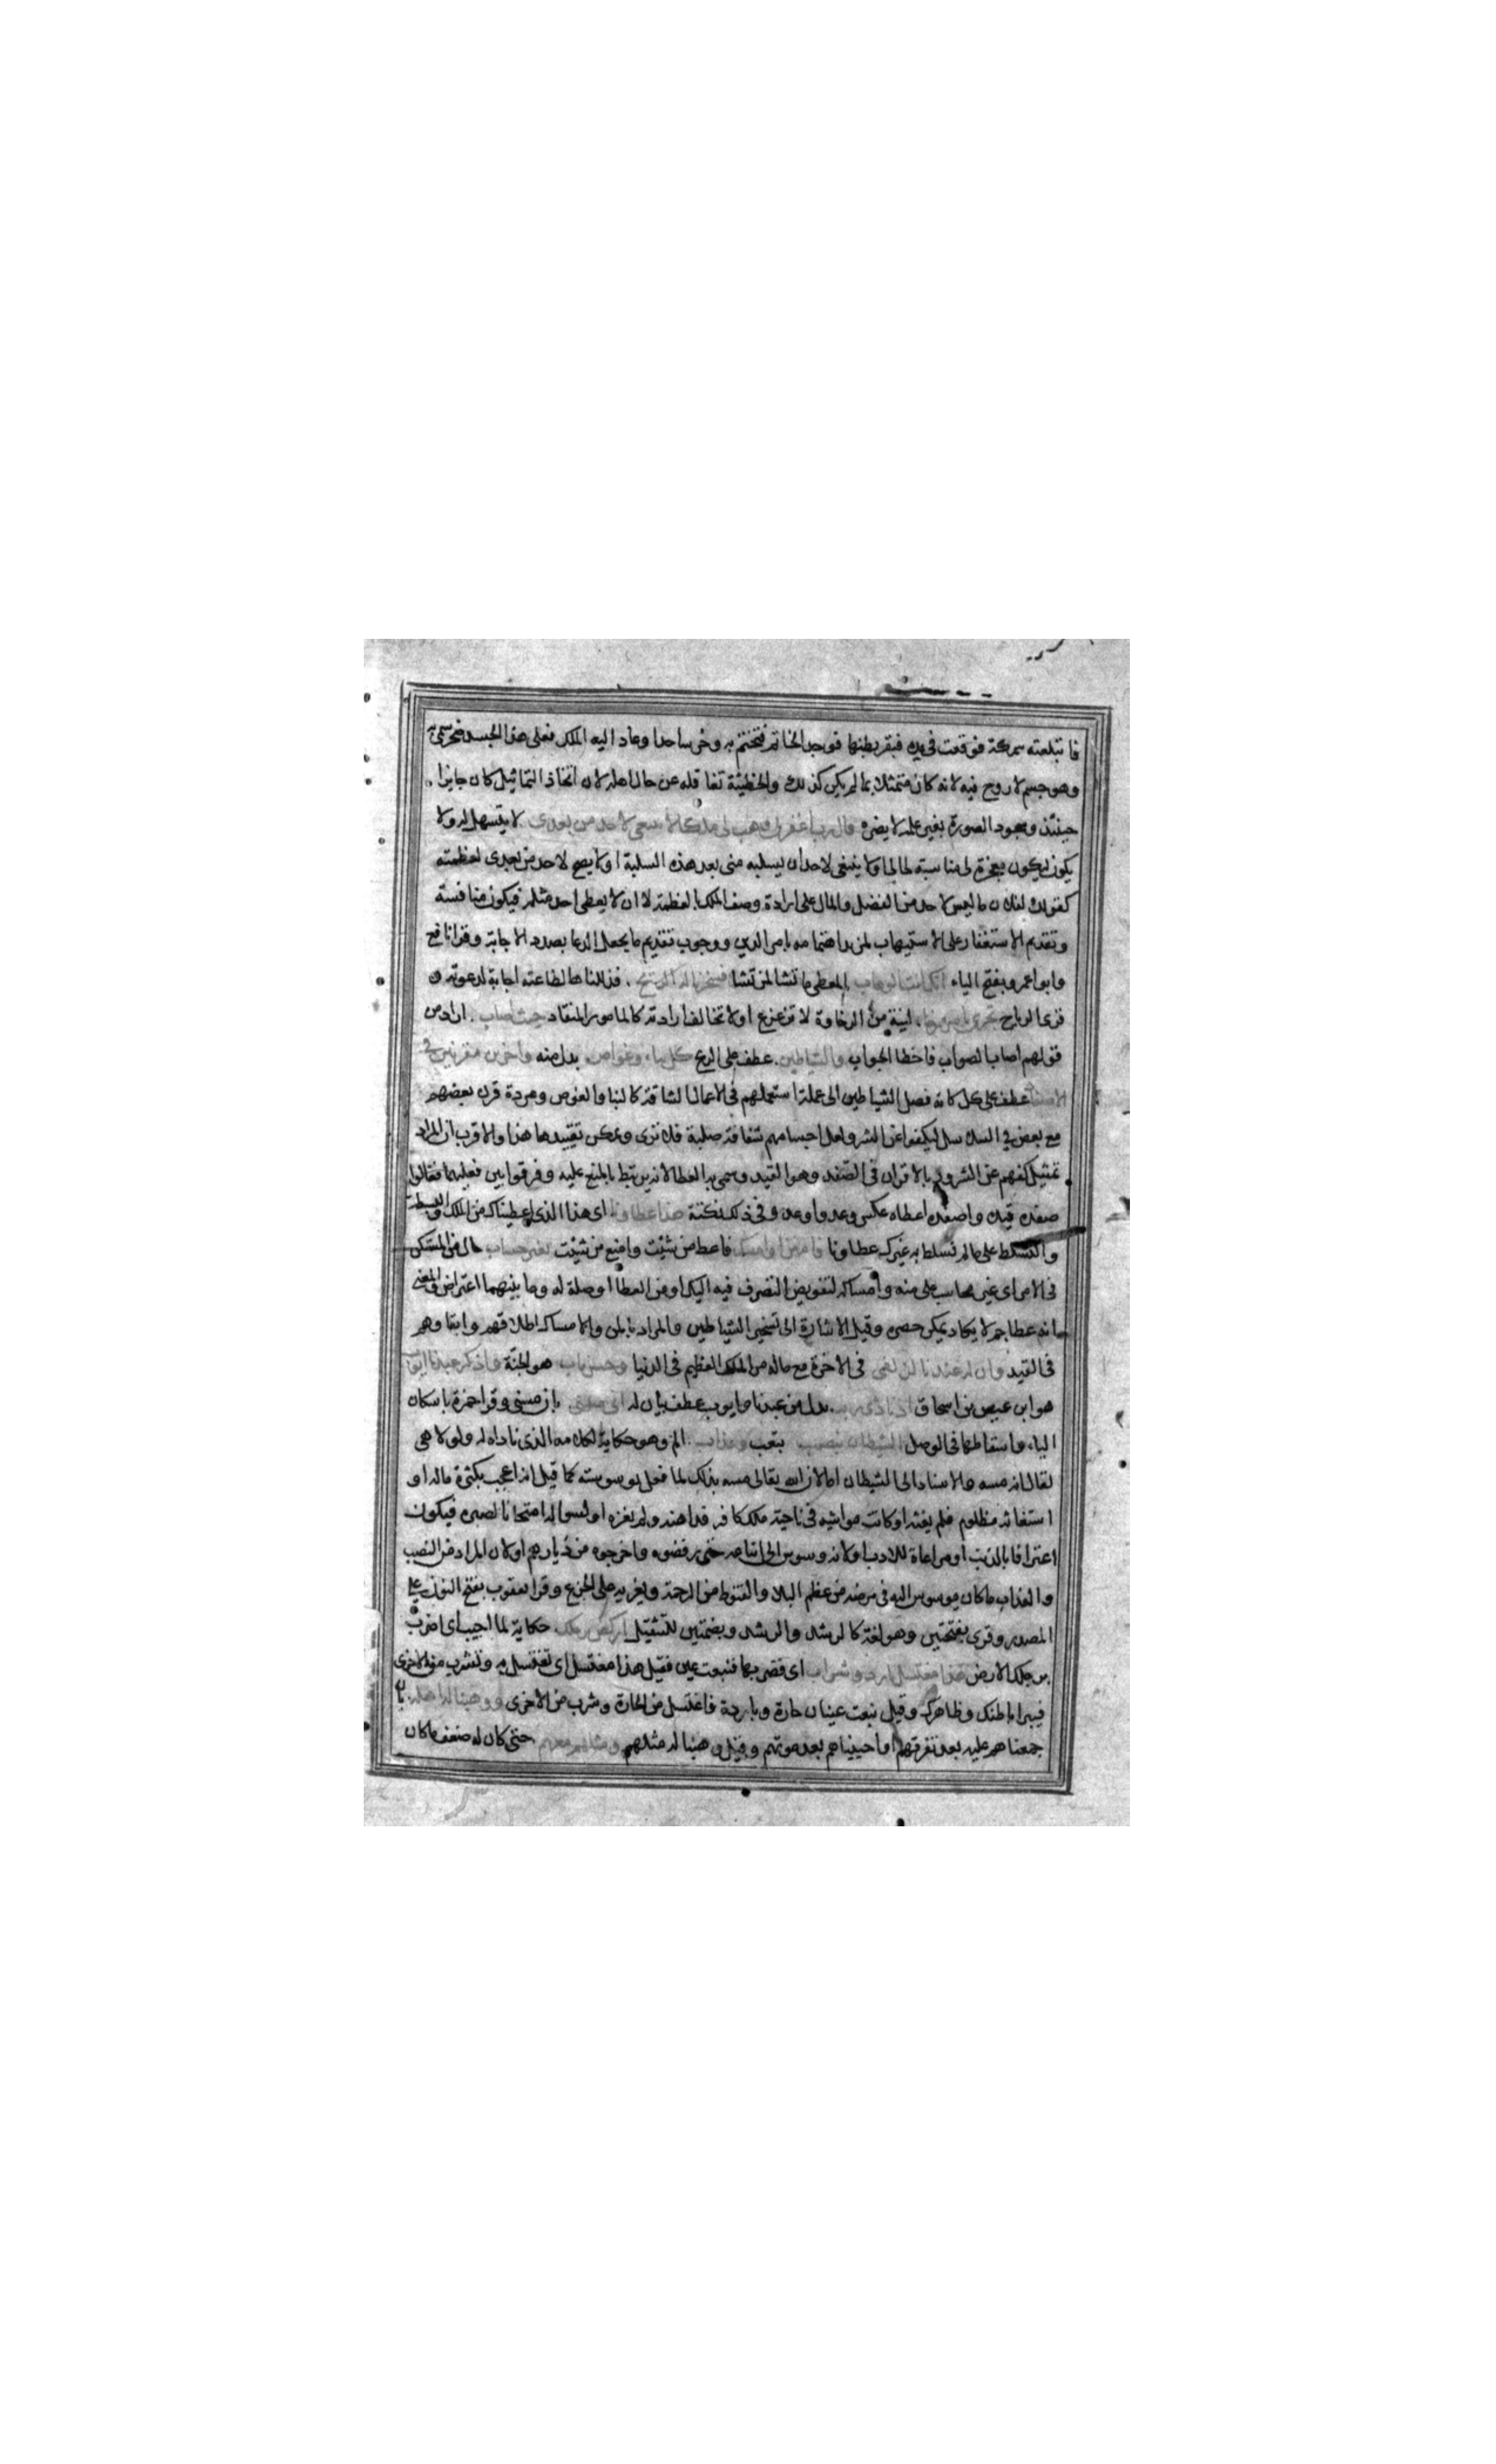 فابتلعته سمكة فوقعت في يده فبقر بطنها فوجد الخاتم فتختم به وخر ساجدا وعاد اليه الملك فعلى هذا الجسد صخر سمى به
وهو جسم لا روح فيه لانه كان متمثلا بما لم يكن كذلك والخطيئة تغافله عن حال اهله لان اتخاذ التماثيل كان جايزا
حينئذ وسجود الصورة بغير علمه لا يضره قال رب اغفر لي وهب لي ملكا لا ينبغي لاحد من بعدي لا يتسهل له ولا
يكون ليكون معجزة لي مناسبة لحالي او لا ينبغي لاحد ان يسلبه مني بعد هذه السلبة او لا يصح لاحد من بعدي لعظمته
كقولك لفلان ما ليس لاحد من الفضل والمال على ارادة وصف الملك بالعظمة لا ان لا يعطى احد مثله فيكون منافسة
وتقديم الاستغفار على الاستيهاب لمزيد اهتمامه بامر الدين ووجوب تقديم ما يجعل الدعا بصدد الاجابة وقرا نافع
وابو عمرو بفتح الياء انك انت الوهاب المعطي ما تشا لمن تشا فسخرنا له الريح فذللناها لطاعته اجابة لدعوته و
قرى الرياح تجري بامره رخاء لينة من الرخاوة لا تزعزع او لا تخالف ارادته كالمامور المنقاد حيث اصاب اراد من
قولهم اصاب الصواب فاخطا الجواب والشياطين عطف على الريح كل بناء وغواص بدل منه واخرين مقرنين في
الاصفاد عطف على كل كانه فصل الشياطين الى عملة استعملهم في الاعمال الشاقة كالبنا والغوص ومردة قرن بعضهم
مع بعض في السلاسل ليكفوا عن الشر ولعل اجسامهم شفافة صلبة فلا ترى ويمكن تقييدها هذا والاقرب ان المراد
تمثيل كفهم عن الشرور بالاقران في الصفد وهو القيد وسمى به العطا لانه يرتبط بالمنعم عليه وفرقوا بين فعليهما فقالوا
صفده قيده واصفده اعطاه عكس وعد واوعد وفي ذلك نكتة هذا عطاونا اى هذا الذي اعطيناك من الملك والبسطة
والتسلط على ما لم تسلط به غيرك عطاونا فامنن او امسك فاعط من شئت وامنع من شئت بغير حساب حال من المستكن
في الامر اى غير محاسب على منه وامساكه لتفويض التصرف فيه اليك او من العطا او صلة له وما بينهما اعتراض والمعنى
انه عطا جم لا يكاد يمكن حصره وقيل الاشارة الى تسخير الشياطين والمراد بالمن والامساك اطلاقهم وابقاوهم
في القيد وان له عندنا لزلفى في الاخرة مع ماله من الملك العظيم في الدنيا وحسن ماب هو الجنة واذكر عبدنا ايوب
هو ابن عيص بن اسحاق اذ نادى ربه بدل من عبدنا وايوب عطف بيان له اني مسني بان مسني وقرا حمزة باسكان
الياء واسقاطها في الوصل الشيطان بنصب بتعب وعذاب الم وهو حكاية لكلامه الذي ناداه له ولولا هي
لقال انه مسه والاسناد الى الشيطان اما لان الله تعالى مسه بذلك لما فعل بوسوسته كما قيل انه اعجب بكثرة ماله او
استغاثه مظلوم فلم يغثه او كانت مواشيه في ناحية ملك كافر فداهنه ولم يغزه او لسواله امتحانا لصبره فيكون
اعترافا بالذنب او مراعاة للادب او لانه وسوس الى اتباعه حتى رفضوه واخرجوه من ديارهم او كان المراد من النصب
والعذاب ما كان يوسوس اليه في مرضه من عظم البلا والقنوط من الرحمة ويغريه على الجزع وقرا يعقوب بفتح النون على
المصدر وقرى بفتحتين وهو لغة كالرشد والرشد وبضمتين للتثقيل اركض برجلك حكاية لما اجيب اى اضرب
برجلك الارض هذا مغتسل بارد وشراب اى فضربها فنبعت عين فقيل هذا مغتسل اى تغتسل به وتشرب منه الاخرى
فيبرا باطنك وظاهرك وقيل نبعت عينان حارة وباردة فاغتسل من الحارة وشرب من الاخرى ووهبنا له اهله بان
جمعناهم عليه بعد تفرقهم او احييناهم بعد موتهم وقيل وهبنا له مثلهم ومثلهم معهم حتى كان له ضعف ما كان